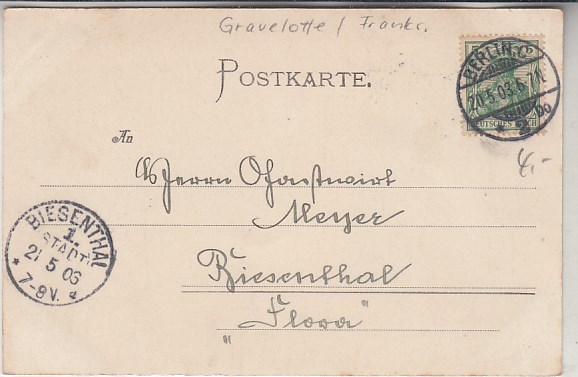 Gravelotte / Frankr.
POSTKARTE.
BERLIN.C.
20.5.03.6-7N.
* 2 bb
DEUTSCHES REICH
4,-
An
Herrn Gastwirt
Meyer
Biesenthal
"Flora"
BIESENTHAL
1.
STADT
21 5 03
* 7-8V. *